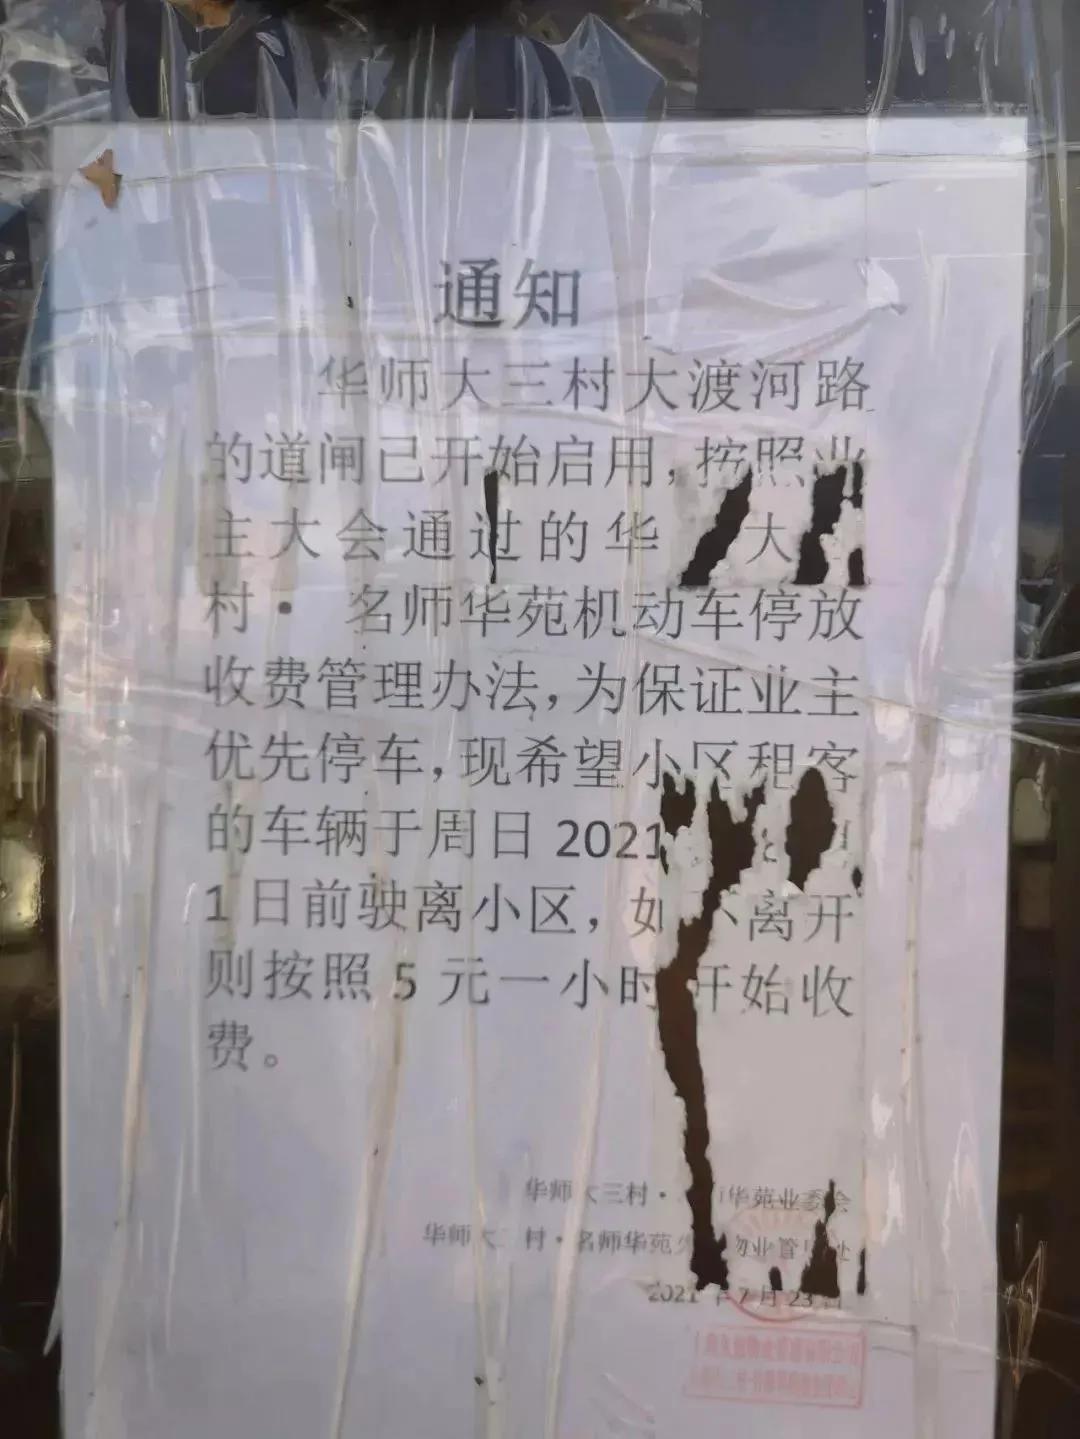 通知
华师大三村大渡河路
的道闸已开始启用，按照业
主大会通过的华 大
村·名师华苑机动车停放
收费管理办法，为保证业主
优先停车，现希望小区租客
的车辆于周日 2021
1 日前驶离小区，如不离开
则按照 5 元一小时开始收
费。
华师大三村· 师华苑业委会
华师大 村·名师华苑 物业管理处
2021 年 7 月 23 日